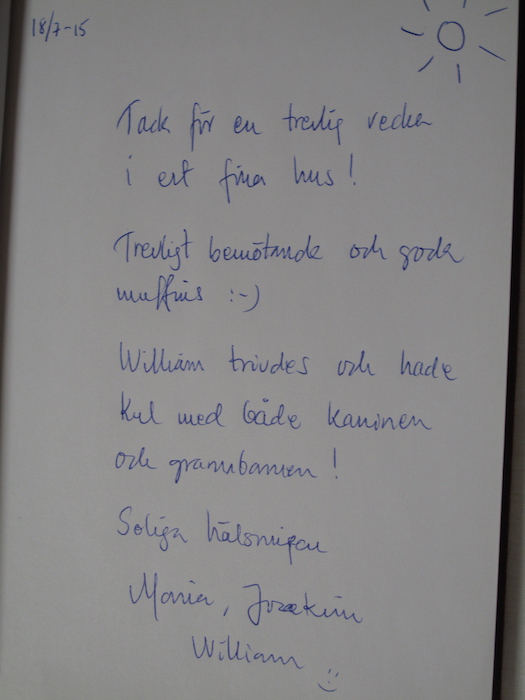 18/7-15
Tack för en trevlig vecka
i ert fina hus!
Trevligt bemötande och goda
muffins :-)
William trivdes och hade
kul med både kaninen
och grannbarnen!
Soliga hälsningar
Maria, Joakim
William